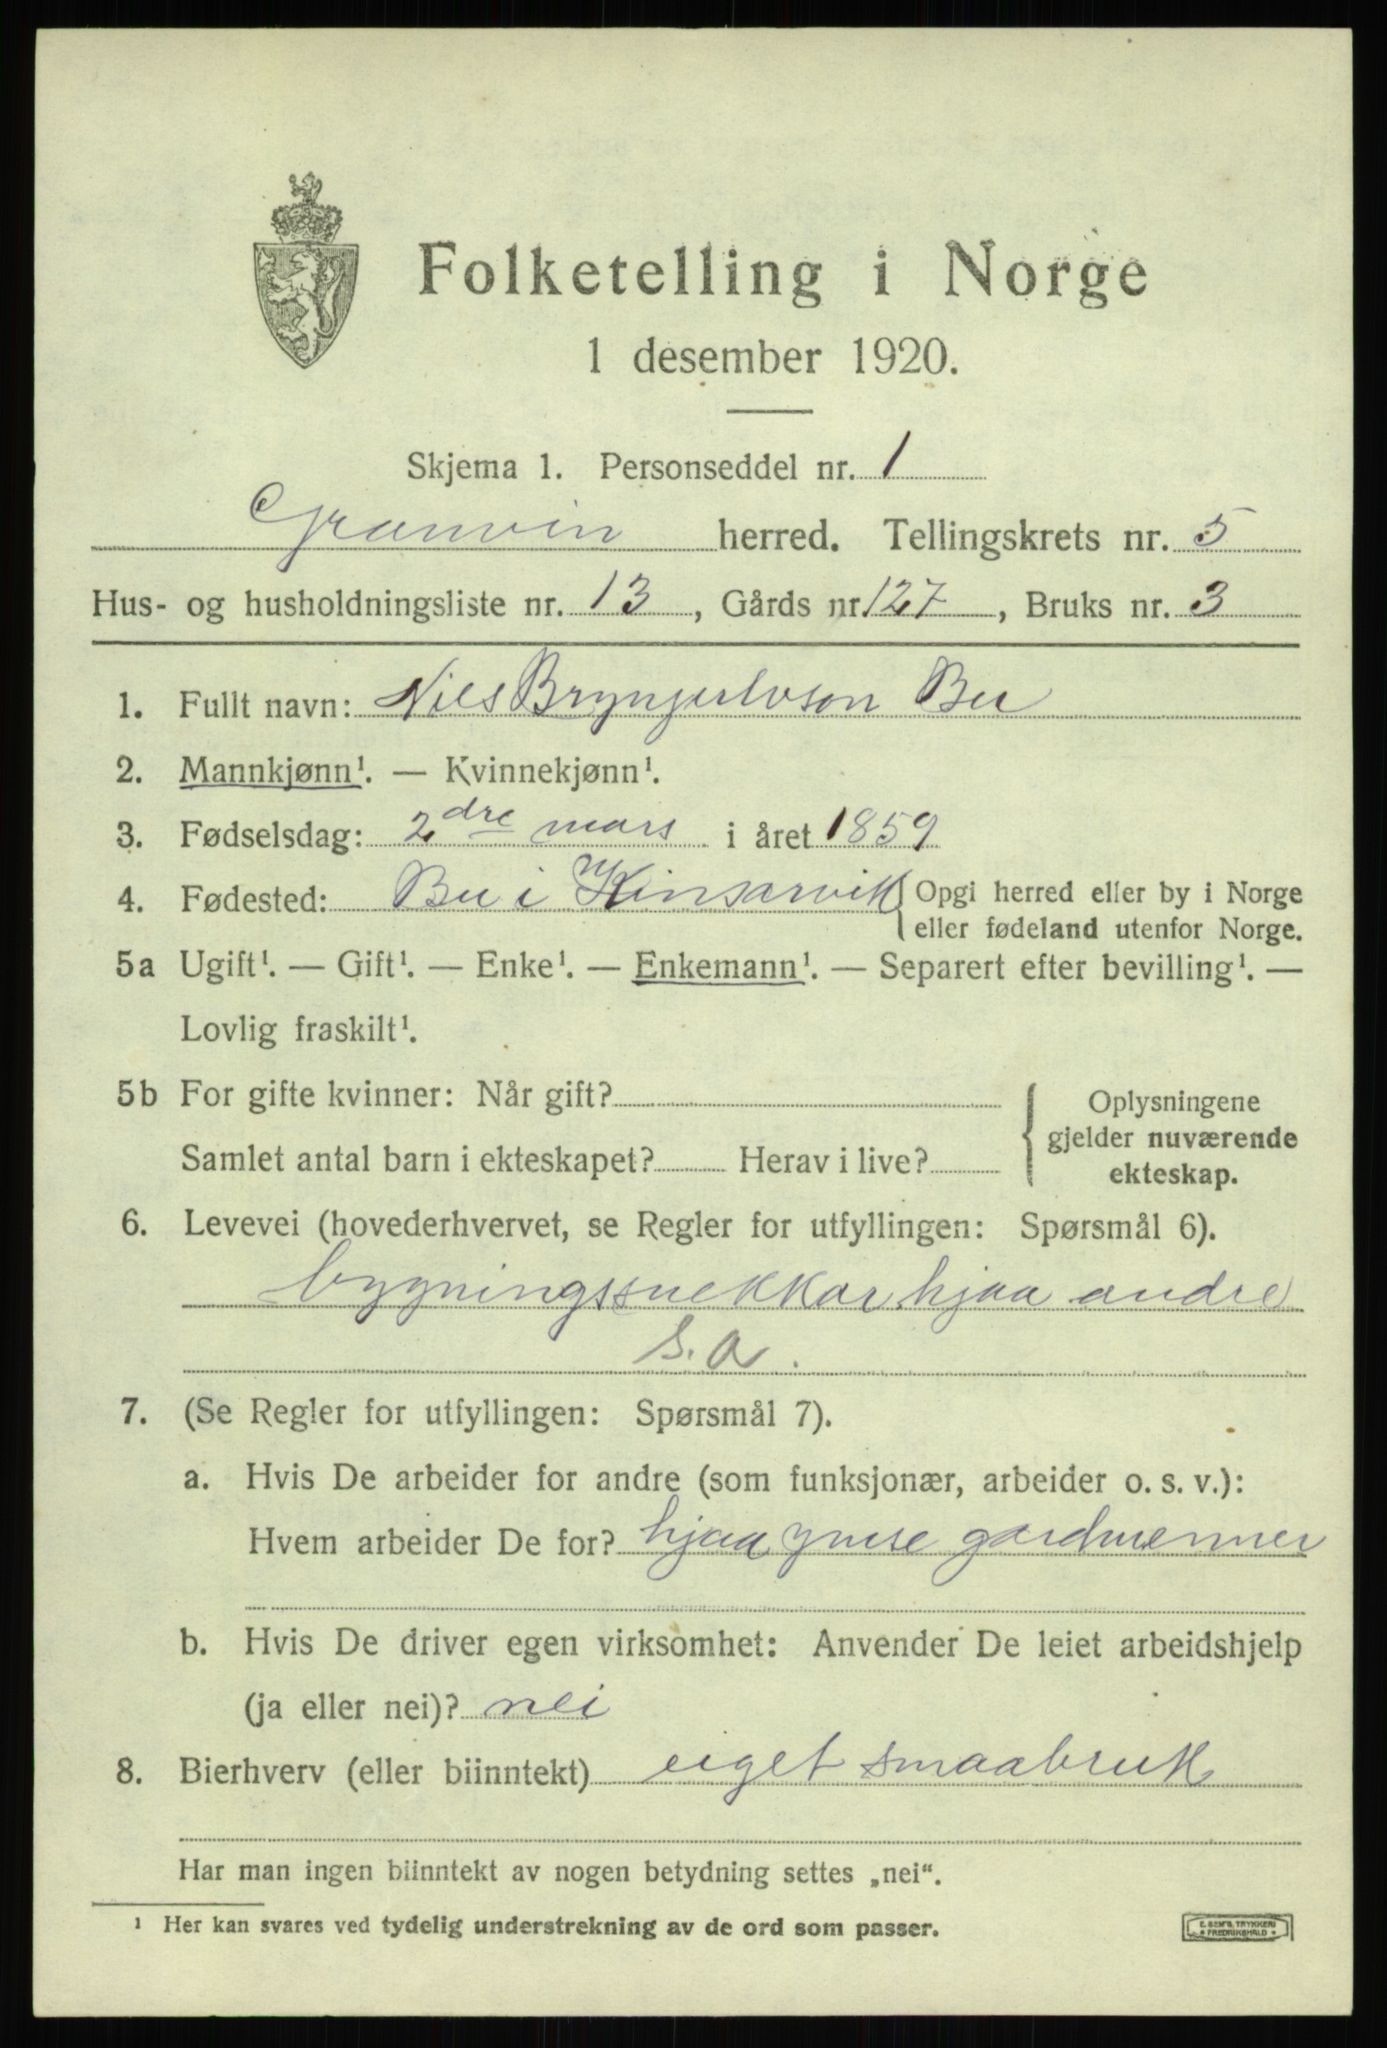 Folketelling i Norge
1 desember 1920.
Skjema 1. Personseddel nr. 1
Granvin herred. Tellingskrets nr. 5
Hus- og husholdningsliste nr. 13, Gårds nr. 127, Bruks nr. 3
1. Fullt navn: Nils Bryngjulvson Bu
2. Mannkjønn¹. — Kvinnekjønn¹.
3. Fødselsdag: 2dre mars i året 1859
4. Fødested: Bu i Kinsarvik { Opgi herred eller by i Norge
eller fødeland utenfor Norge.
5a Ugift¹. — Gift¹. — Enke¹. — Enkemann¹. — Separert efter bevilling¹. —
Lovlig fraskilt¹.
5b For gifte kvinner: Når gift?
Samlet antal barn i ekteskapet? Herav i live?
{ Oplysningene
gjelder nuværende
ekteskap.
6. Levevei (hovederhvervet, se Regler for utfyllingen: Spørsmål 6).
bygningssnekkar hjaa andre
s. a.
7. (Se Regler for utfyllingen: Spørsmål 7).
a. Hvis De arbeider for andre (som funksjonær, arbeider o. s. v.):
Hvem arbeider De for? hjaa ymse gardmenner
b. Hvis De driver egen virksomhet: Anvender De leiet arbeidshjelp
(ja eller nei)? nei
8. Bierhverv (eller biinntekt) eiget smaabruk
Har man ingen biinntekt av nogen betydning settes „nei“.
¹ Her kan svares ved tydelig understrekning av de ord som passer.
E. SEM'S TRYKKERI
FREDRIKSHALD